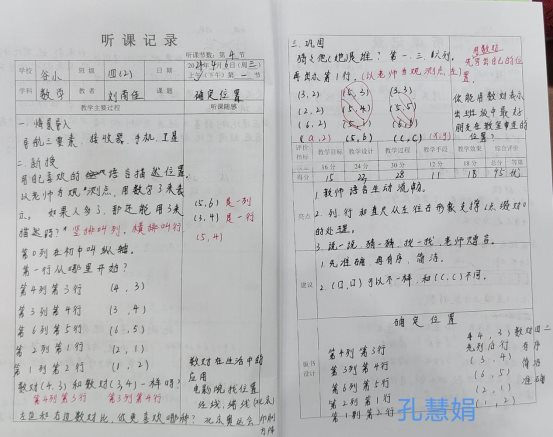 听课记录
听课节数：第 4 节
学校 谷小 班级 四(2) 日期
上午(下午)第一节
学科 数学 教者 课题 确定位置
教学主要过程 听课随感
一. 情景导入
导航三要素 接收器 手机 卫星
二. 新授
用自己喜欢的 语言描述位置
以老师为观测点，用数字3来表
示。 如果人多了，那还能用3来
描述吗？ 竖排叫列，横排叫行
(5,6) 是一列
(3,4) 是一行
(5,4)
第0列在初中叫纵轴。
第一行从哪里开始？
第4列第3行 (4,3)
第3列第4行 (3,4)
第6列第5行 (6,5)
第2列第1行 (2,1)
第1列第2行 (1,2)
数对(4,3)和数对(3,4)一样吗？
第4列第3行 第3列第4行
左边和右边数对比，你更喜欢哪种？
数对在生活中的
应用
电影院找位置
经线、纬线(北京)
北京奥运会
三. 巩固
猜3他(她)是谁？ 第一、三、队列，
再出示第1行，(以老师为观测点，左)
(3,2) (5,3)
(2,2) (5,4) (5,5)
(6,2)
(a,2) (5,b) (c,c) (x,y)
用数对
写出自己的位置
你能用数对表示
出班级中最好
朋友在教室里的
位置？
评价指标 教学目标 教学设计 教学过程 教学手段 教学效果 综合评价
16分 24分 30分 12分 18分 总分 等第
得分 15 22 28 11 18 95 优
亮点
1. 教师语言生动流畅。
2. 列、行和直尺从左往右形象支撑
的处理。
3. 说一说，猜一猜，找一找，老师
建议
1. 先准确，再有序，简洁。
2. (□,□)可以不一样，和(c,c)不同。
板书设计
确定位置
第4列第3行 (4,3) 数对
第3列第4行 (3,4)
先列后行 有序
第6列第5行 (6,5) 简洁
第2列第1行 (2,1) 准确
第1列第2行 (1,2)
孔慧娟